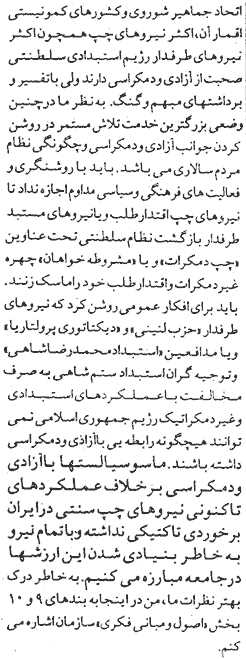 اتحاد جماهیر شوروی و کشورهای کمونیستی
اقمار آن، اکثر نیروهای چپ همچون اکثر
نیروهای طرفدار رژیم استبدادی سلطنتی
صحبت از آزادی و دمکراسی دارند ولی با تفسیر و
برداشتهای مبهم و گنگ. به نظر ما در چنین
وضعی بزرگترین خدمت تلاش مستمر در روشن
کردن جوانب آزادی و دمکراسی و چگونگی نظام
مردم سالاری می باشد. باید با روشنگری و
فعالیت های فرهنگی و سیاسی مداوم اجازه نداد تا
نیروهای چپ اقتدار طلب و یا نیروهای مستبد
طرفدار بازگشت نظام سلطنتی تحت عناوین
«چپ دمکرات» و یا «مشروطه خواهان» چهره
غیر دمکرات و اقتدار طلب خود را ماسک زنند.
باید برای افکار عمومی روشن کرد که نیروهای
طرفدار «حزب لنینی» و «دیکتاتوری پرولتاریا»
و یا مدافعین «استبداد محمدرضا شاهی»
و توجیه گران استبداد ستم شاهی به صرف
مخالفت با عملکردهای استبدادی
و غیر دمکراتیک رژیم جمهوری اسلامی نمی
توانند هیچگونه رابطه یی با آزادی و دمکراسی
داشته باشند. ما سوسیالستها با آزادی
و دمکراسی بر خلاف عملکردهای
تاکنونی نیروهای چپ سنتی در ایران
برخوردی تاکتیکی نداشته و با تمام نیرو
به خاطر بنیادی شدن این ارزشها
در جامعه مبارزه می کنیم. به خاطر درک
بهتر نظرات ما، من در اینجا به بندهای ۹ و ۱۰
بخش «اصول و مبانی فکری» سازمان اشاره می
کنم.